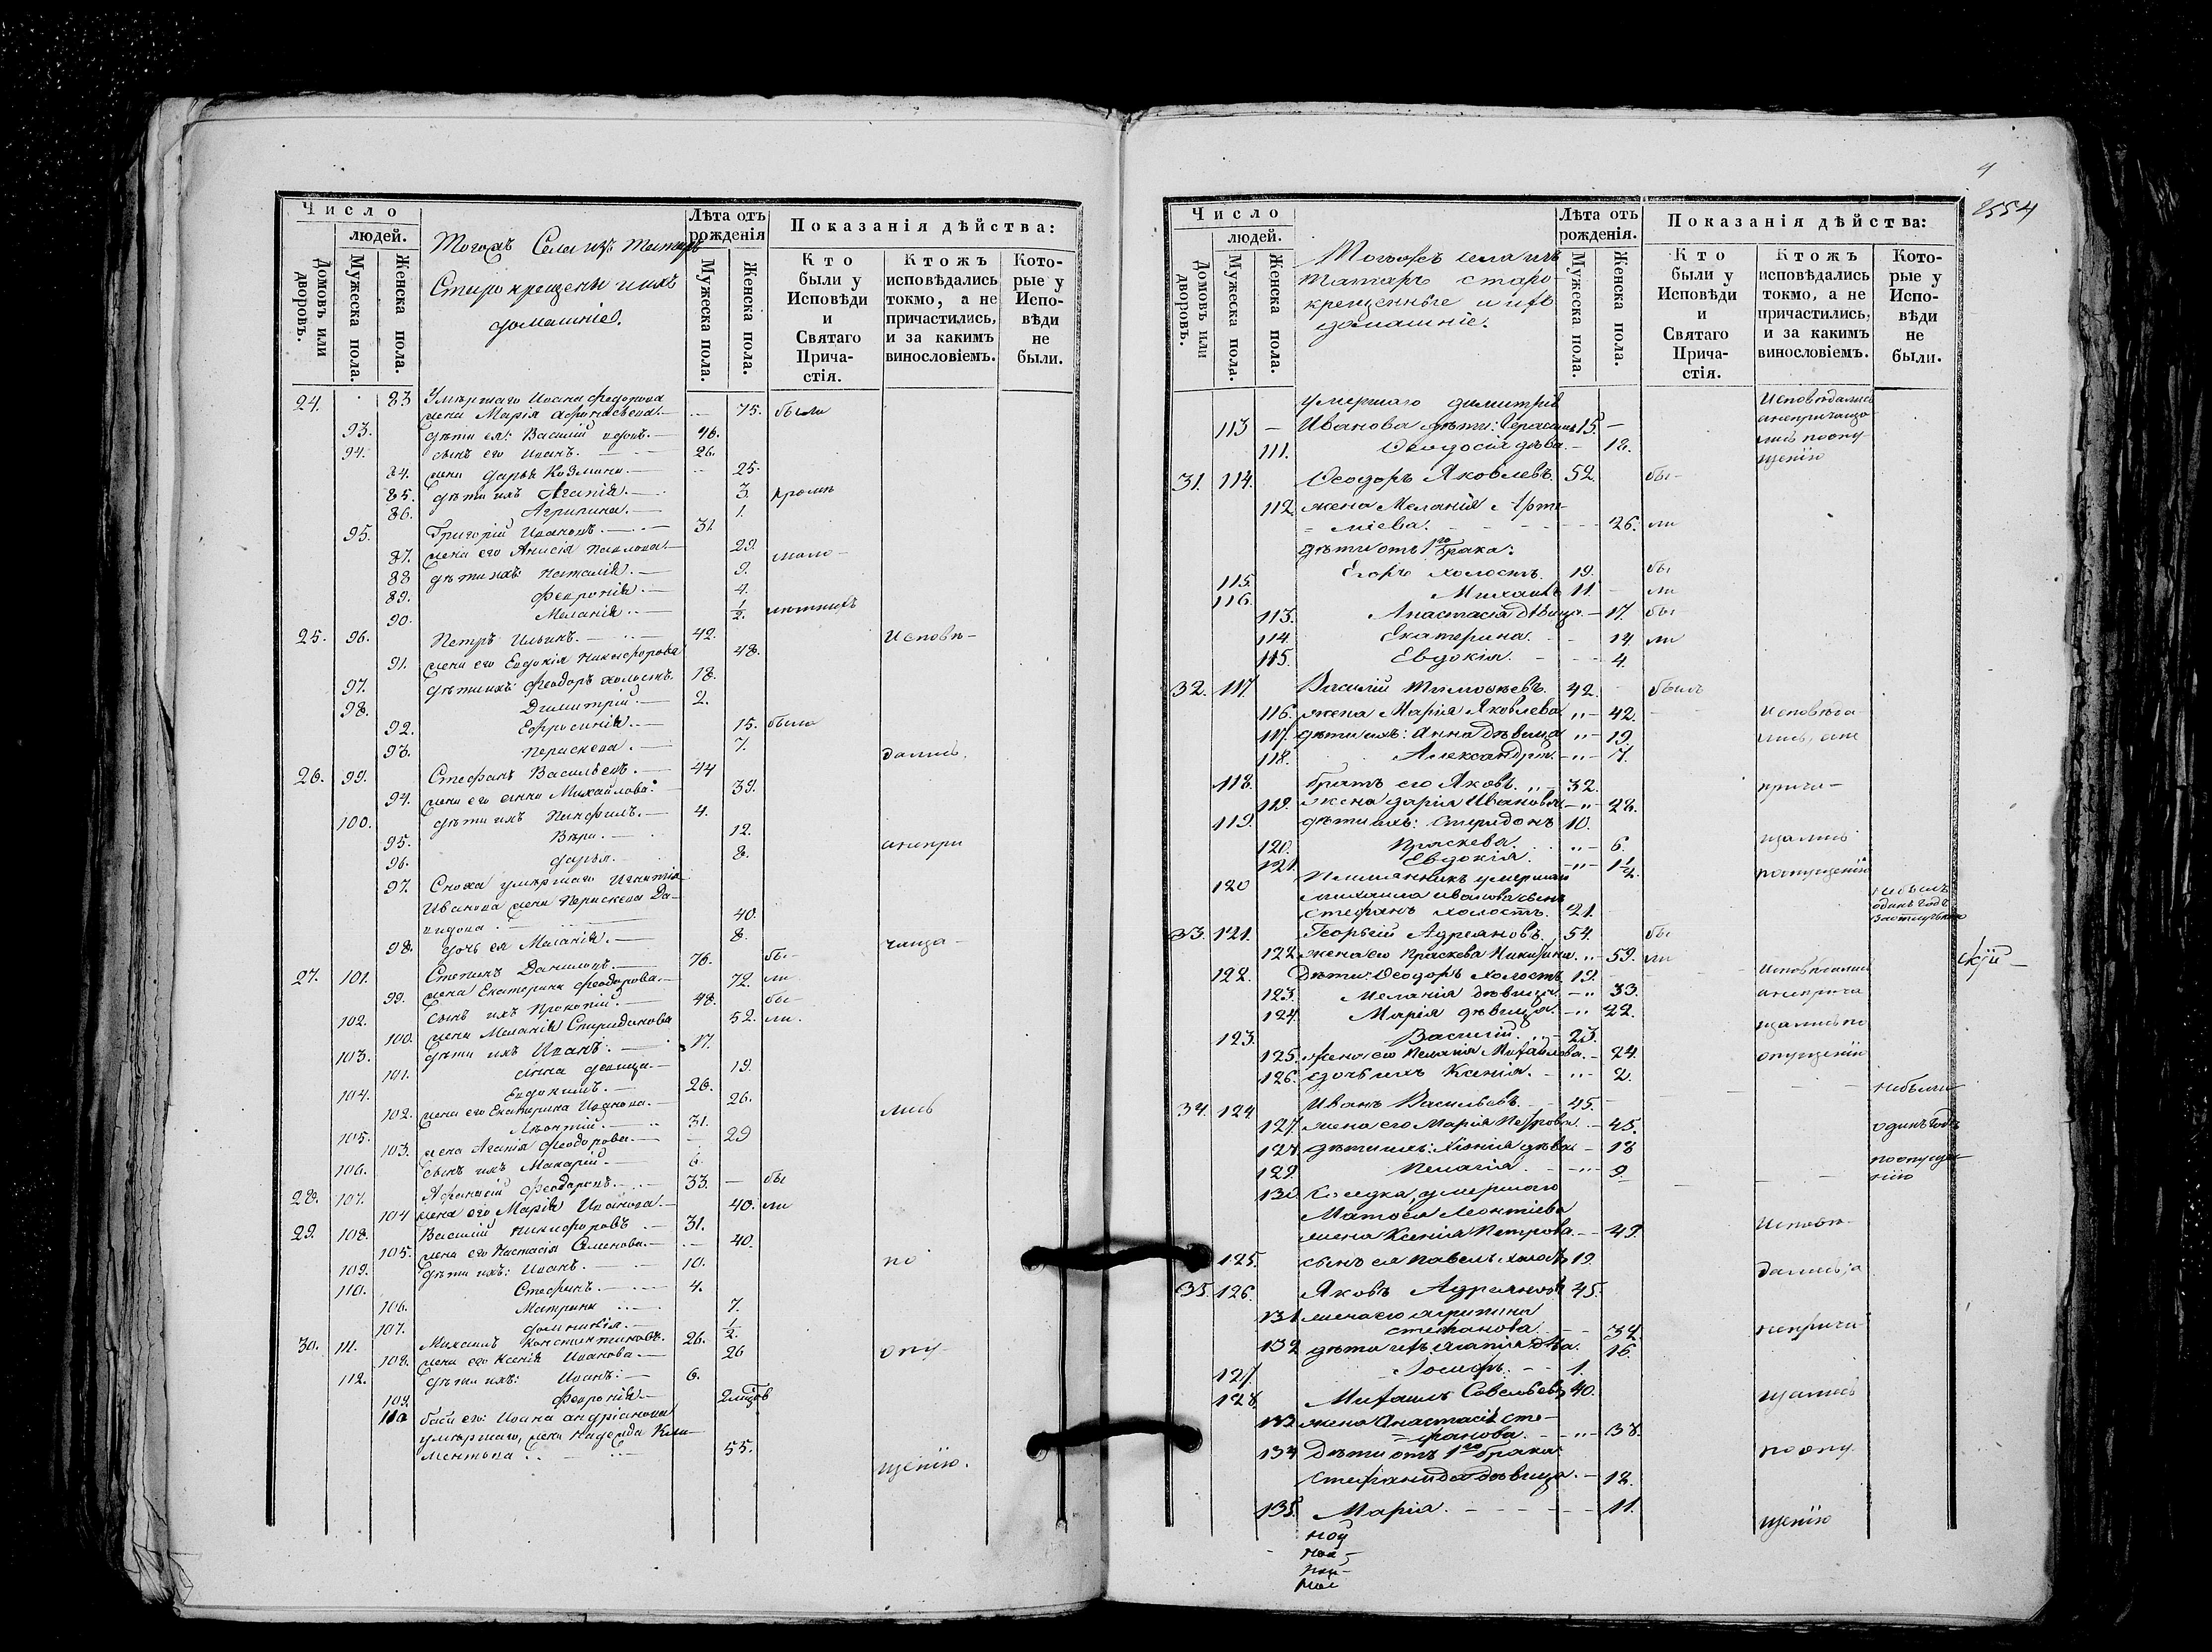 Число
людей.
Домовъ или дворовъ.
Мужеска пола.
Женска пола.
Тогожъ Села изъ Татаръ
Старокрещены и ихъ
домашніе.
Лѣта отъ рожденія
Мужеска пола.
Женска пола.
Показанія дѣйства:
Кто были у Исповѣди и Святаго Причастія.
Ктожъ исповѣдались токмо, а не причастились, и за какимъ винословіемъ.
Которые у Исповѣди не были.
24. 83 Умѣршаго Иоана Феодорова
жена Марія Афонасьева. 75. были
93. дѣти ея: Василій вдов. 46.
94. сынъ его Иванъ. 26.
84. жена Дарья Козмина. 25.
85. дѣти ихъ Агапія. 3. кромѣ
86. Агрипина. 1.
95. Григорій Ивановъ. 31
87. жена его Анисія Павлова. 29.
88 дѣти ихъ: Наталія. 9. мало-
89. Февронія. 4.
90. Меланія. 1/2. лѣтнихъ
25. 96. Петръ Ильинъ. 42. Исповѣ-
91. жена его Евдокія Никифорова 48.
97. дѣти ихъ: Феодоръ холостъ. 18.
98. Димитрій. 2.
92. Ефросинія. 15. была
93. Параскева. 7. дались,
26. 99. Стефанъ Васильевъ. 44
94. жена его Анна Михайлова. 39.
100. дѣти ихъ Панфилъ. 4.
95. Вѣра. 12.
96. Дарья. 8. анепри
97. Сноха умѣршаго Игнатія
Иванова жена Параскева Да-
видова. 40.
98. дочь ея Меланія. 8. чаща-
27. 101. Степанъ Даниловъ. 76. бы-
99. жена Екатерина Феодорова. 72. ли
102. сынъ ихъ Прокопій. 48. бы-
100. жена Меланія Спиридонова 52. ли.
103. дѣти ихъ Иванъ. 17.
101. Анна девица. 19.
104. Евдокимъ. 26.
102. жена его Екатерина Иванова. 26. лись
105. Леонтій. 31.
103. жена Агапія Феодорова. 29
106. сынъ ихъ Макарій. 6.
28. 107. Афанасій Феодоровъ. 33. бы
104 жена его Марія Иванова. 40. ли
29. 108. Василій Никифоровъ. 31.
105. жена его Настасія Семенова. 40.
109. дѣти ихъ: Иванъ. 10. по
110. Стефанъ. 4.
106. Матрина 7.
107. Домникія. 1/2.
30. 111. Михаилъ Константиновъ. 26.
108. жена его Ксенія Иванова. 26 опу-
112. дѣти ихъ: Иванъ. 6.
109. Февронія.
110 баби его: Иоана Андріанова
умѣршаго, жена Надежда Кли-
ментьва 55.
щенію.
4
2554
Число
людей.
Домовъ или дворовъ.
Мужеска пола.
Женска пола.
Тогожъ села изъ
Татаръ старо-
крещенные и ихъ
домашніе.
Лѣта отъ рожденія.
Мужеска пола.
Женска пола.
Показанія дѣйства:
Кто были у Исповѣди и Святаго Причастія.
Ктожъ исповѣдались токмо, а не причастились, и за какимъ винословіемъ.
Которые у Исповѣди не были.
умершаго Димитрія Исповѣдались
113 Иванова дѣти: Герасимъ 15. анепричаща-
111. Ѳеодосія дѣва. 18. лись поопу-
щенію
31. 114. Ѳеодоръ Яковлевъ. 52. бы-
112. жена Меланія Арте-
міева. 26. ли
дѣти отъ 1го брака:
115. Егоръ холостъ. 19. бы
116. Михаилъ 11. ли
113. Анастасія дѣвица. 17. бы
114. Екатерина. 14 ли
115. Евдокія. 4.
32. 117. Василій Тимоѳеевъ. 42. былъ
116. жена Марія Яковлева 42. исповѣда
117. дѣти ихъ: Анна дѣвица 19. лись, ане
118. Александра. 7.
118. братъ его Яковъ. 32. прича-
119. жена Дарія Иванова 28.
119. дѣти ихъ: Спиридонъ 10.
120. Праскева. 6. щались
121. Евдокія. 1 1/2. поопущенію
120 Племянникъ умершаго
Михаила Иванова сынъ небылъ
Стефанъ холостъ. 21. одинъ годъ
33. 121. Георгій Адреяновъ. 54. бы
122. жена его Праскева Никитина. 59. ли
122. Дѣти: Ѳеодоръ холостъ 19. Исповѣдались
123. Меланія дѣвица 33. анеприча
124. Марія дѣвица. 22. щались по
123. Василій. 23.
125. жена его Пелагія Михайлова. 24. опущенію
126. дочь ихъ Ксенія. 2.
34. 124 Иванъ Васильевъ. 45. небыли
127. жена его Марія Петрова. 45. одинъ годъ
128 дѣти ихъ: Ксенія дѣва 18 поопуще
129. Пелагія. 9. нію
130. Соседка, умершаго
Матѳея Леонтіева
жена Ксенія Петрова. 49. Исповѣ-
125. сынъ ея Павелъ холостъ 19. дались, а
35. 126. Яковъ Адреяновъ 45.
131 жена его Агрипина
Стефанова. 32. неприча
132 дѣти ихъ. Агапія дѣва. 16.
127. Іосифъ. 1.
128. Михаилъ Савельевъ 40. щались
133 жена Анастасія Сте-
фанова. 38.
134 Дѣти отъ 1го брака: поопу
Стефанида дѣвица. 18.
135. Марія. 11. щенію